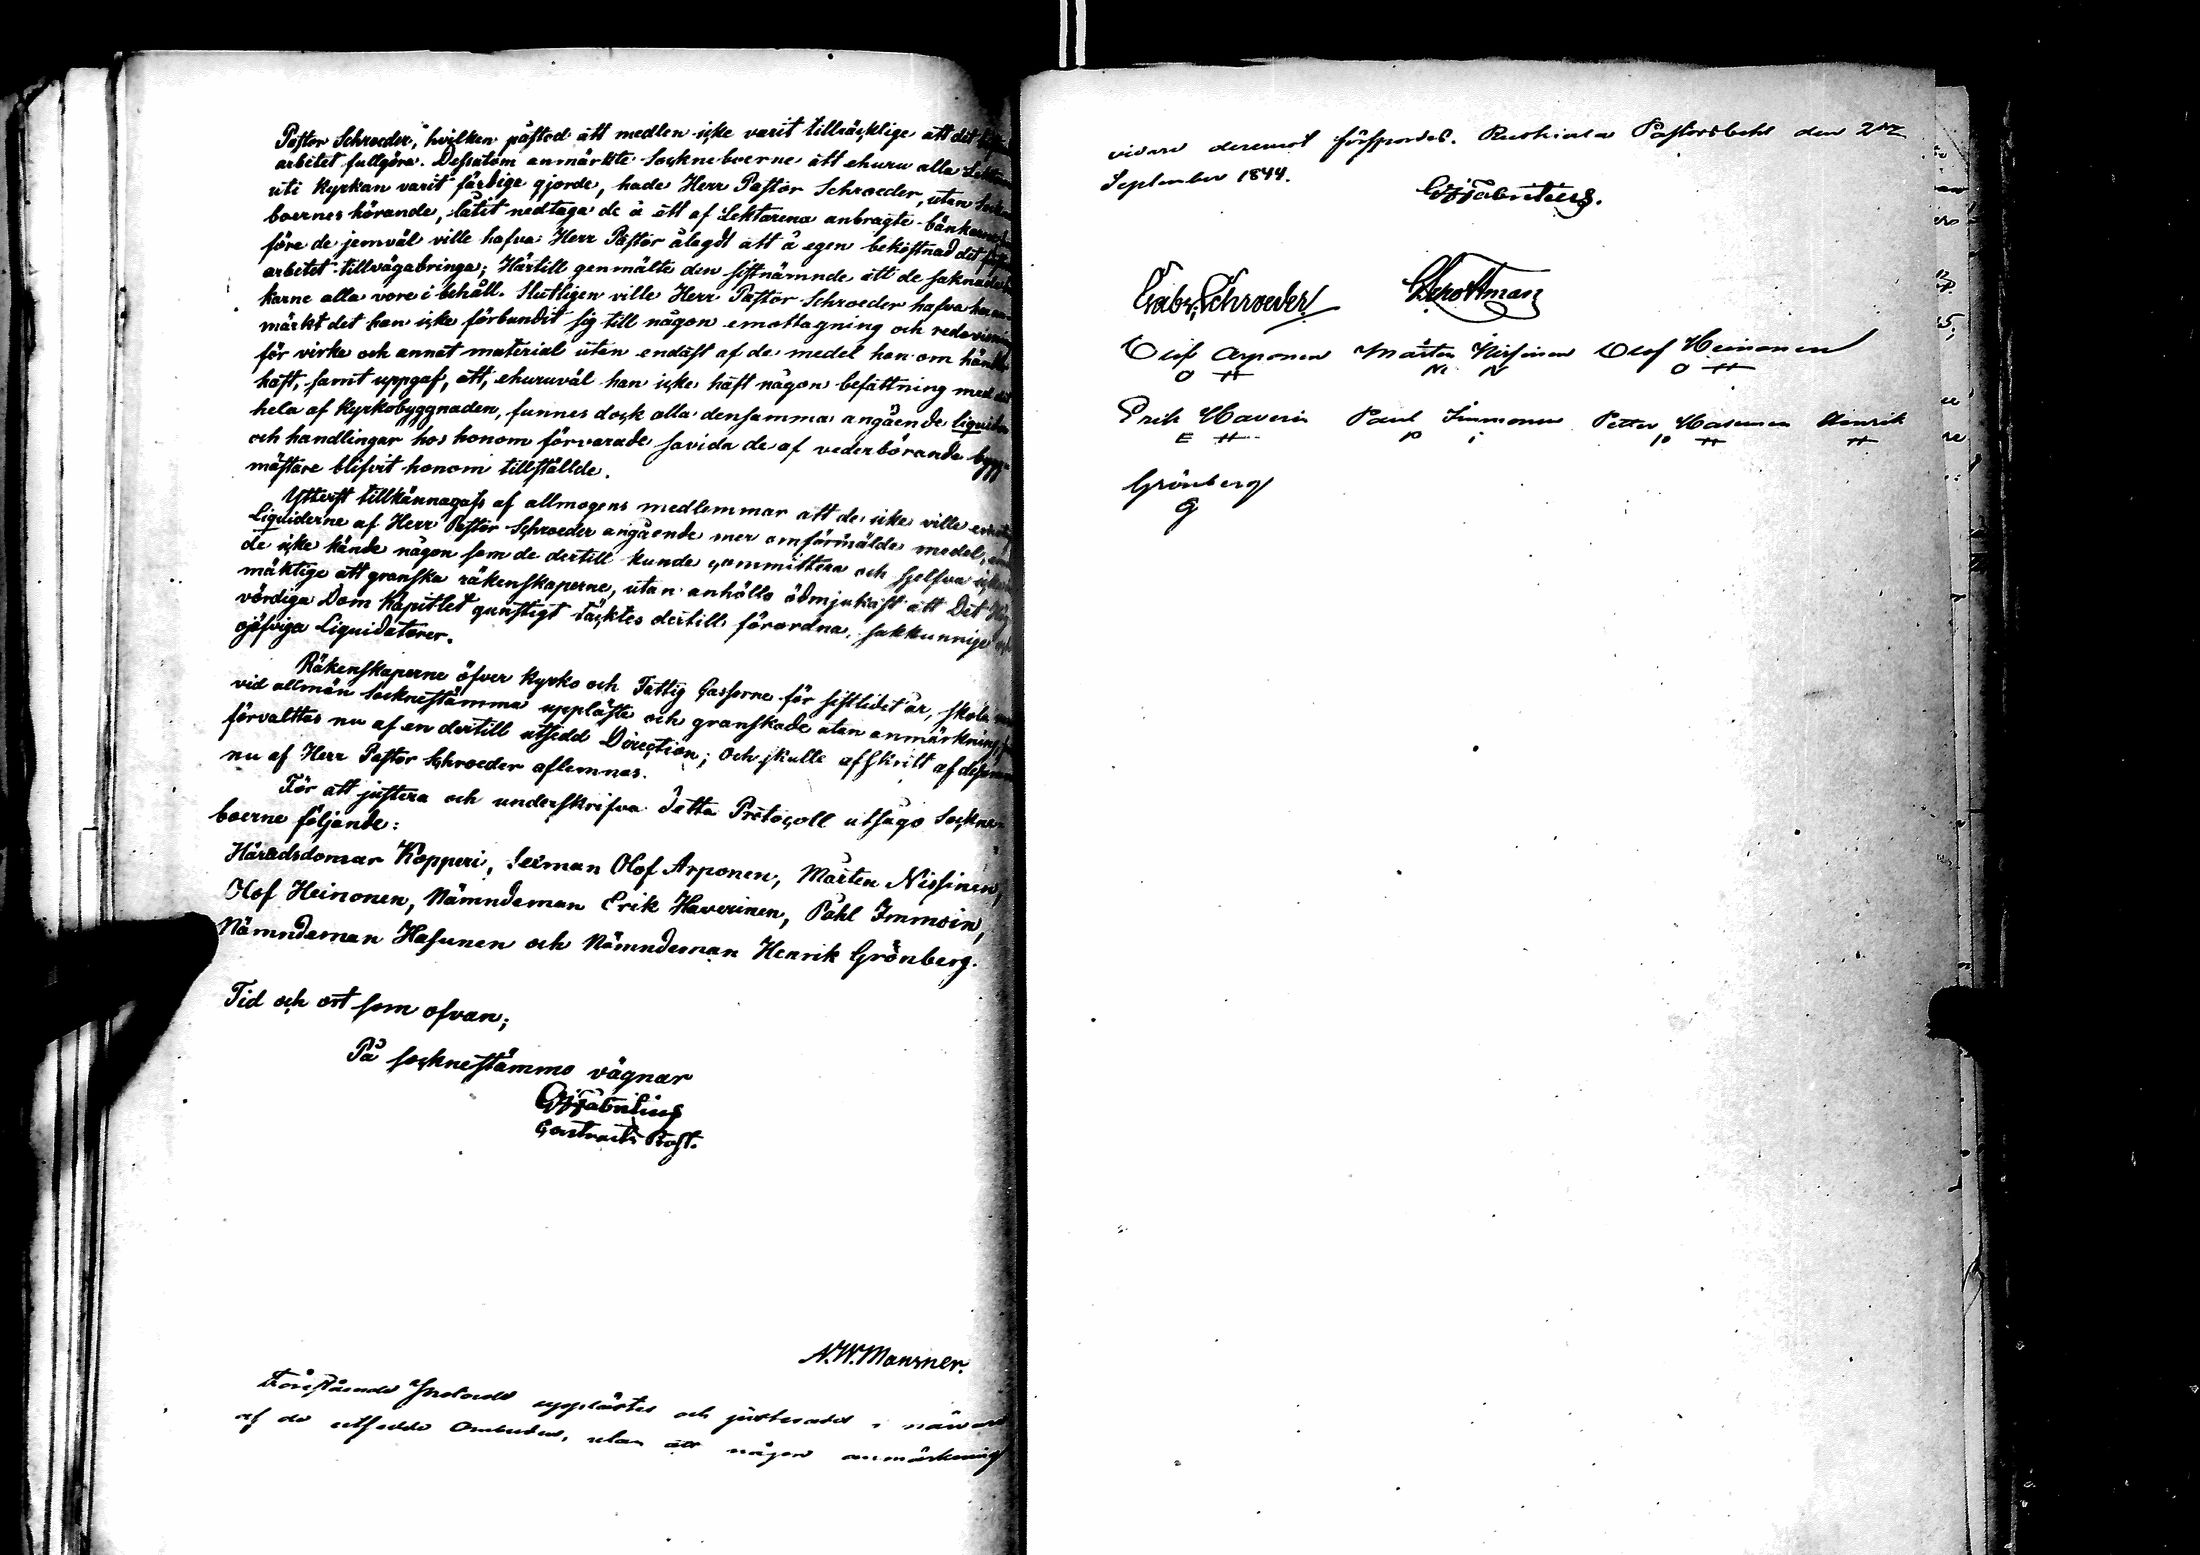 Pastor Schroeder, hvilken påstod att medlen icke varit tillräcklige att det
arbetet fullgöra. Dessutom anmärkte Sockneboerne att ehuru alla Lektarne
uti Kyrkan varit färdige gjorde, hade Herr Pastor Schroeder, utan Sockne
boernes hörande, låtit nedtaga de å ett af Lektarena anbragte bänkarne,
före de jemväl ville hafva Herr Pastor ålagdt att å egen bekostnad det
arbetet tillvägabringa; Härtill genmälte den sistnämnde att de saknade
karne alla vore i behåll. Slutligen ville Herr Pastor Schroeder hafva
märkt det han icke förbundit sig till någon emottagning och redovisning
för virke och annat material utan endast af de medel han om händer
haft, samt uppgaf, att, ehuruväl han icke haft någon befattning med det
hela af Kyrkobyggnaden, funnes dock alla densamma angående liquider
och handlingar hos honom förvarade savida de af vederbörande bygg-
mästare blifvit honom tillställde.
Ytterst tillkännagafs af allmogens medlemmar att de icke ville
Liquiderne af Herr Pastor Schroeder angående mer omförmälde medel,
de icke kände någon som de dertill kunde committera och sjelfva icke
mäktige att granska räkenskaperne, utan anhöllo ödmjukast att Det Hög
vördiga Dom Kapitlet gunstigt täcktes dertill förordna, sakkunnige
ojäfviga Liquidatorer.
Räkenskaperne öfver Kyrko och Fattig Casserne för sistlidet år, skola
vid allmän Socknestämma uppläste och granskade utan anmärkning,
förvaltas nu af en dertill utsedd Direction; och skulle afskrift af desamma
nu af Herr Pastor Schroeder aflemnas.
För att justera och underskrifva detta Protocoll utsågo Sockne-
boerne följande:
Häradsdomar Kopperi, Sexman Olof Arponen, Mårten Nissinen,
Olof Heinonen, Nämndeman Erik Haverinen, Påhl Immoin,
Nämndeman Hasunen och Nämndeman Henrik Grönberg.
Tid och ort som ofvan;
På Socknestämmo vägnar
Fabritius
Contracts Prost.
N. W. Mansner.
Förestående Protocoll upplästes och justerades i närvaro
af de utsedde Ombuden, utan att någon anmärkning
vidare deremot förspordes. Ruskiala Pastorsbohl den 2dra
September 1844.
Fabritius.
Gabr. Schroeder
Olof Arponen Mårten Nissinen Olof Heinonen
O H N N O H
Erik Haverin Paul Immonen Petter Hasunen Henrik
E H P i P H H
Grönberg
G